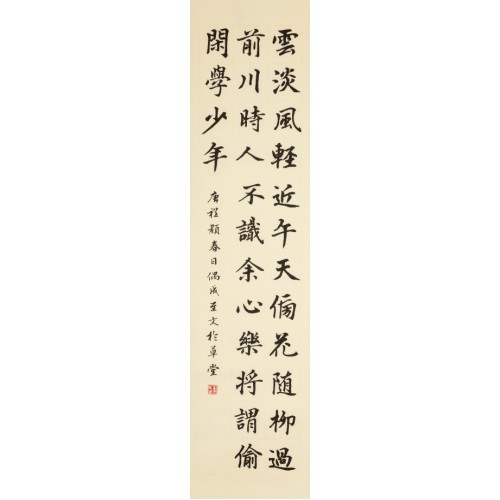 雲淡風輕近午天傍花随柳過
前川時人不識余心樂将謂偷
閑學少年
唐程顥春日偶成至文於草堂